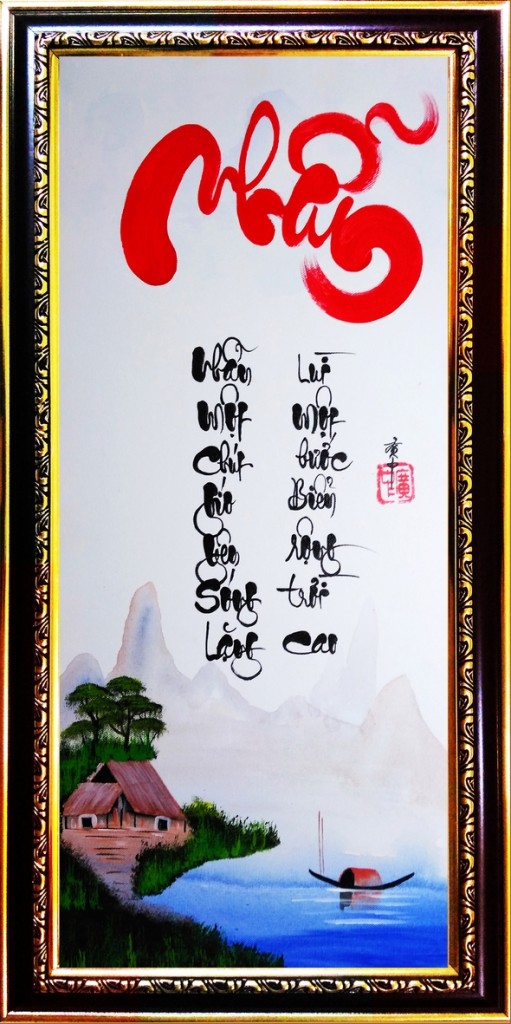 Nhẫn
Nhẫn một chút gió yên Sóng Lặng
Lùi một bước Biển rộng trời cao